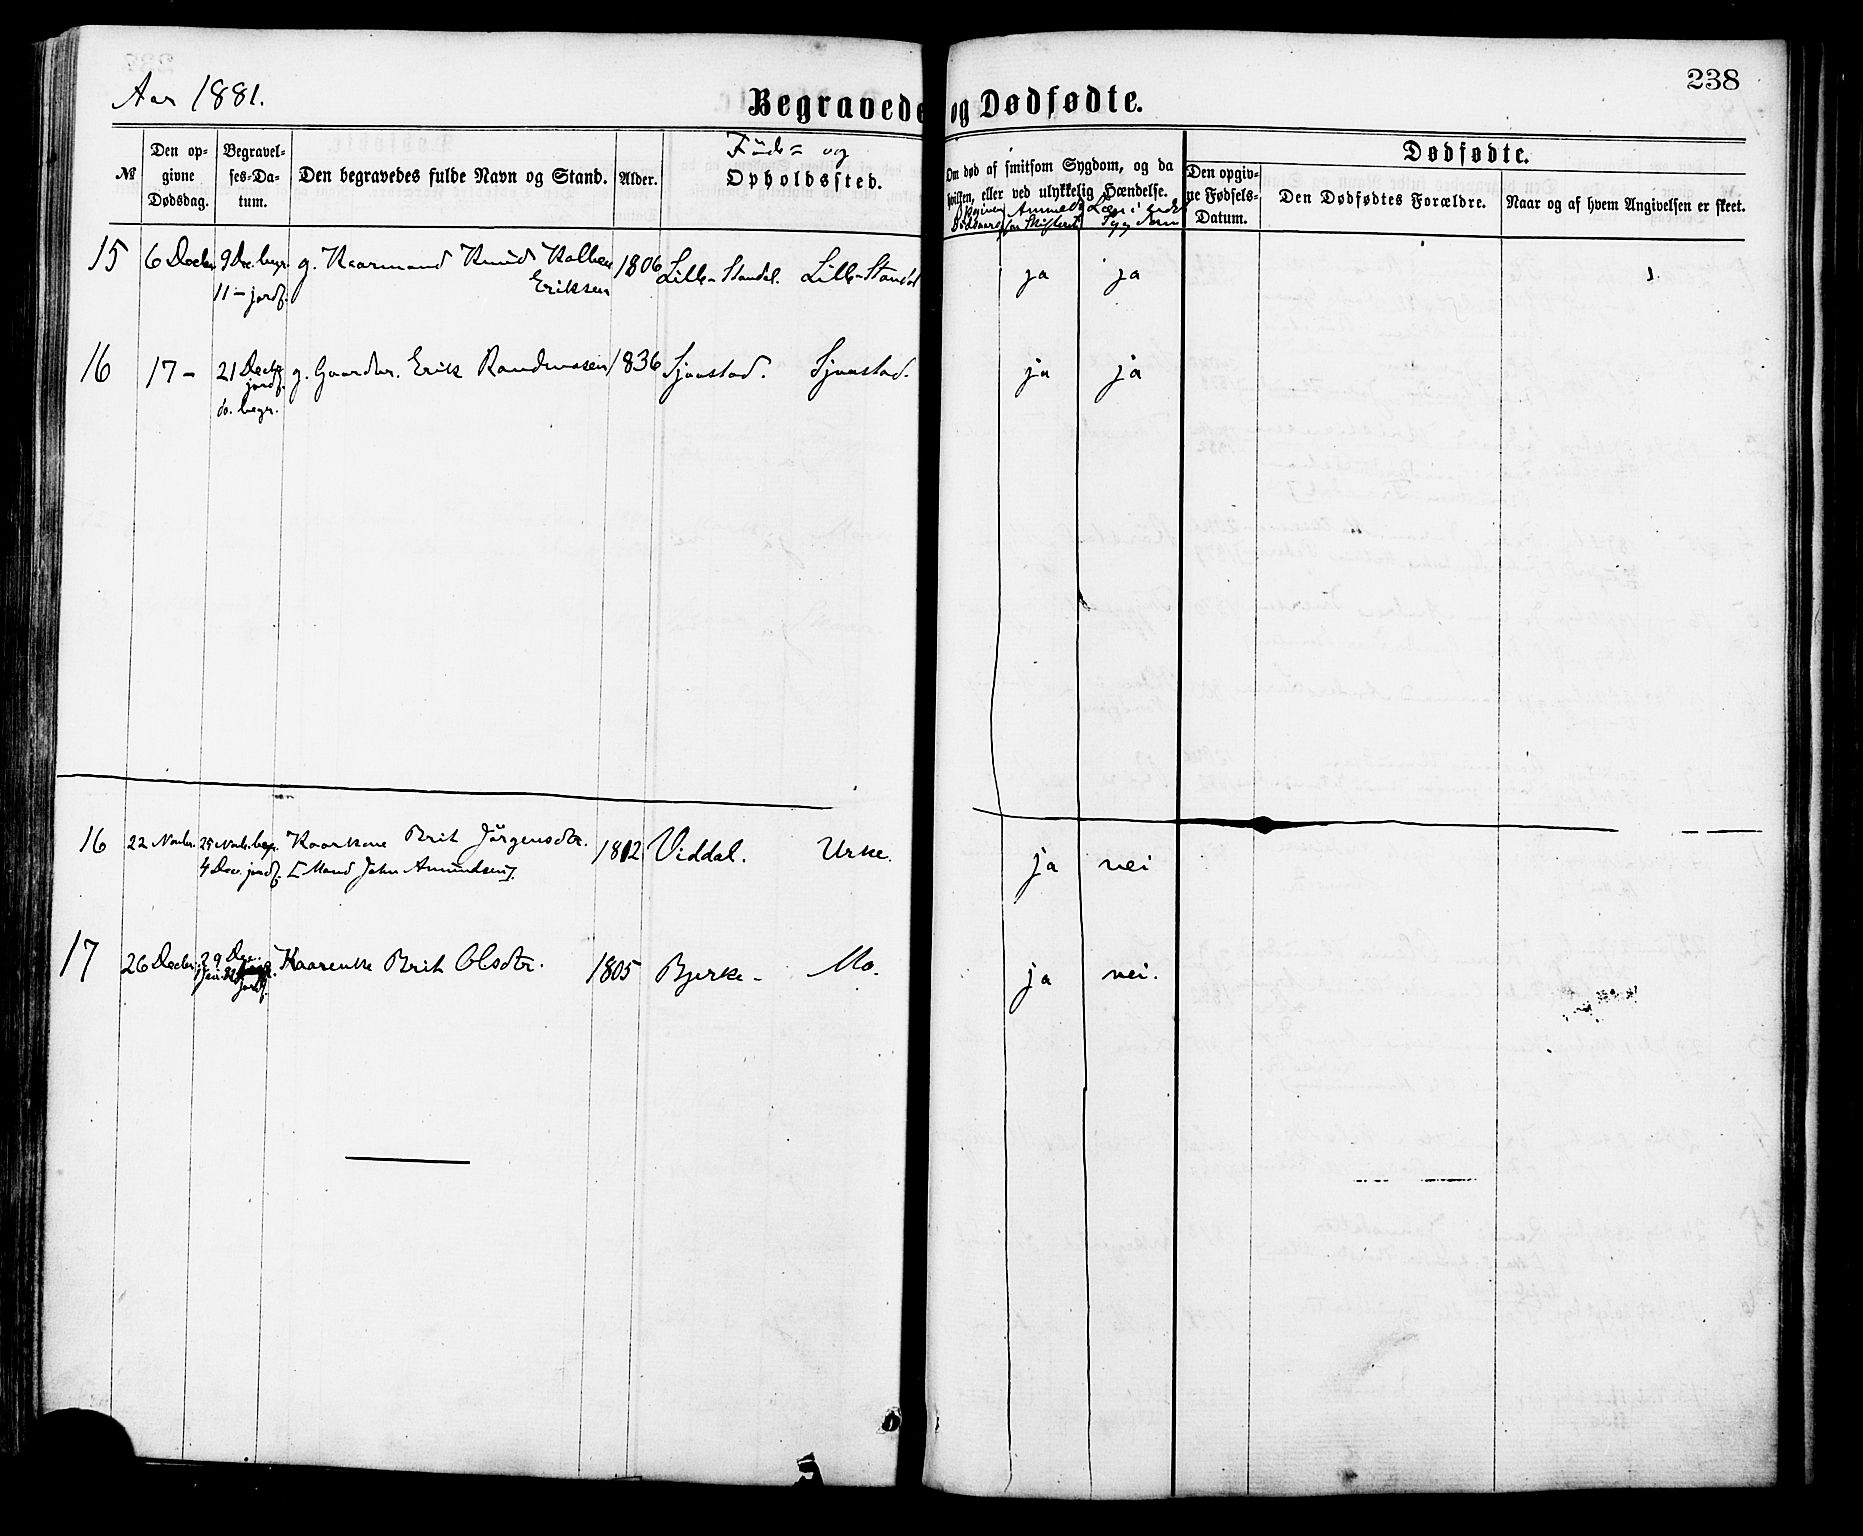 238
Aar 1881.
Begravede og Dødfødte.
№
Den op-
givne
Dødsdag.
Begravel-
ses-Da-
tum.
Den begravedes fulde Navn og Stand.
Alder.
Føde- og
Opholdssted.
Om død af smitsom Sygdom, og da
hvilken, eller ved ulykkelig Hændelse.
Anmeldt
for Skifteret
Læge
Sygdom
Dødfødte.
Den opgiv-
ne Fødsels-
Datum.
Den Dødfødtes Forældre.
Naar og af hvem Angivelsen er skeet.
15 6 Decbr. 9 De. begr. g. Kaarmand Knud Kolbein 1806 Lille-Standal. Lille-Standal ja ja
11 – jordf. Eriksen
16 17 – 21 Decbr. g. Gaardbr. Erik Rasmussen 1836 Sjaastad. Sjaastad. ja ja
jordf.
do. begr.
16 22 Novbr. 25 Novb. begr. Kaarkone Brit Jörgensdtr. 1812 Viddal. Urke. ja nei
4 Dec. jordf. [Mand John Amundsen].
17 26 Decbr. 29 Dec. Kaarenke Brit Olsdtr. 1805 Bjerke – Mo. ja nei.
jordf.